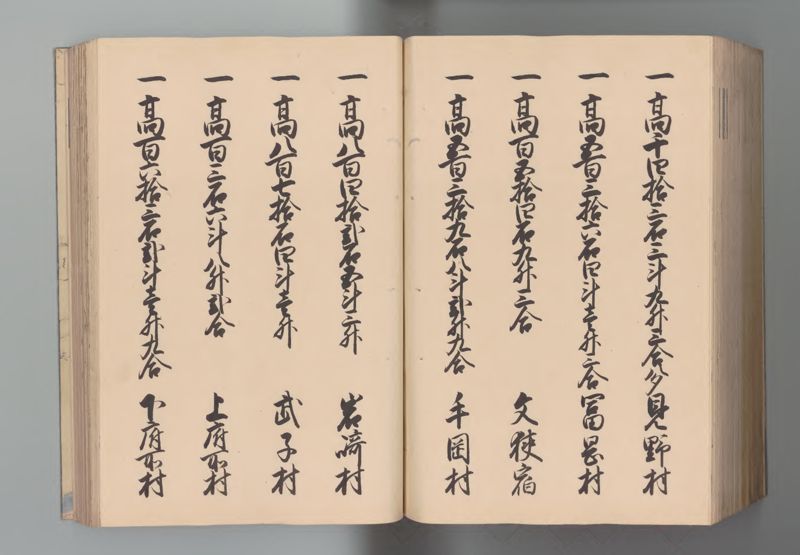 一高千四拾三石三斗九升三合 多見野村
一高五百三拾六石四斗壱升三合 冨岡村
一高百五拾四石九升三合 文狭宿
一高五百三拾九石八斗弐升九合 手岡村
一高八百四拾弐石五斗三升 岩崎村
一高八百七拾石四斗壱升 武子村
一高百三石六斗八升弐合 上府所村
一高百六拾三石弐斗壱升九合 下府所村